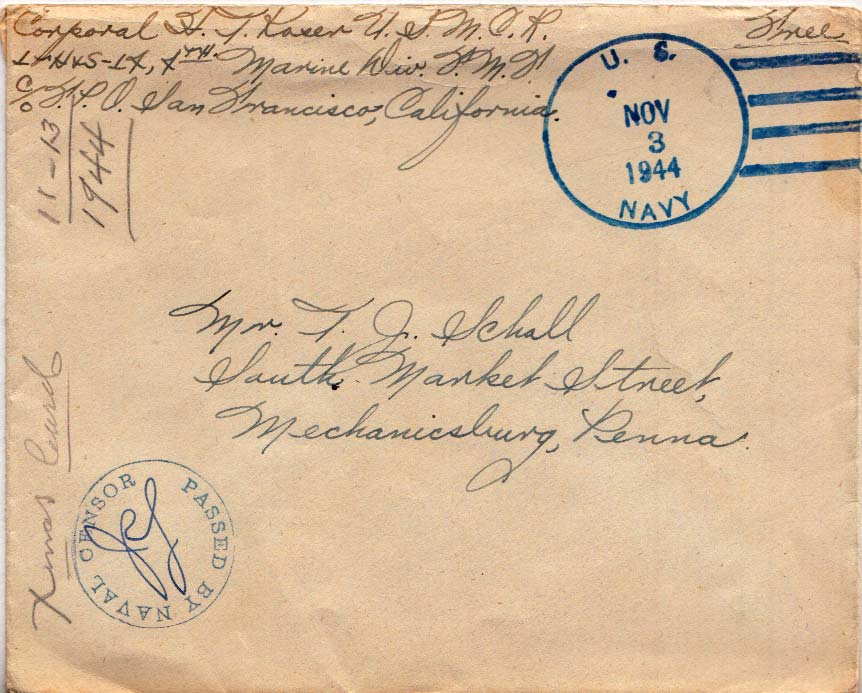 Corporal H. T. Koser U. S. M. C. R.
4th Marine Div. F. M. F.
c/o F. P. O. San Francisco, California.
Free
U. S.
NOV
3
1944
NAVY
11-13
1944
Mr. T. J. Schall
South Market Street,
Mechanicsburg, Penna.
Xmas Card
PASSED BY NAVAL CENSOR